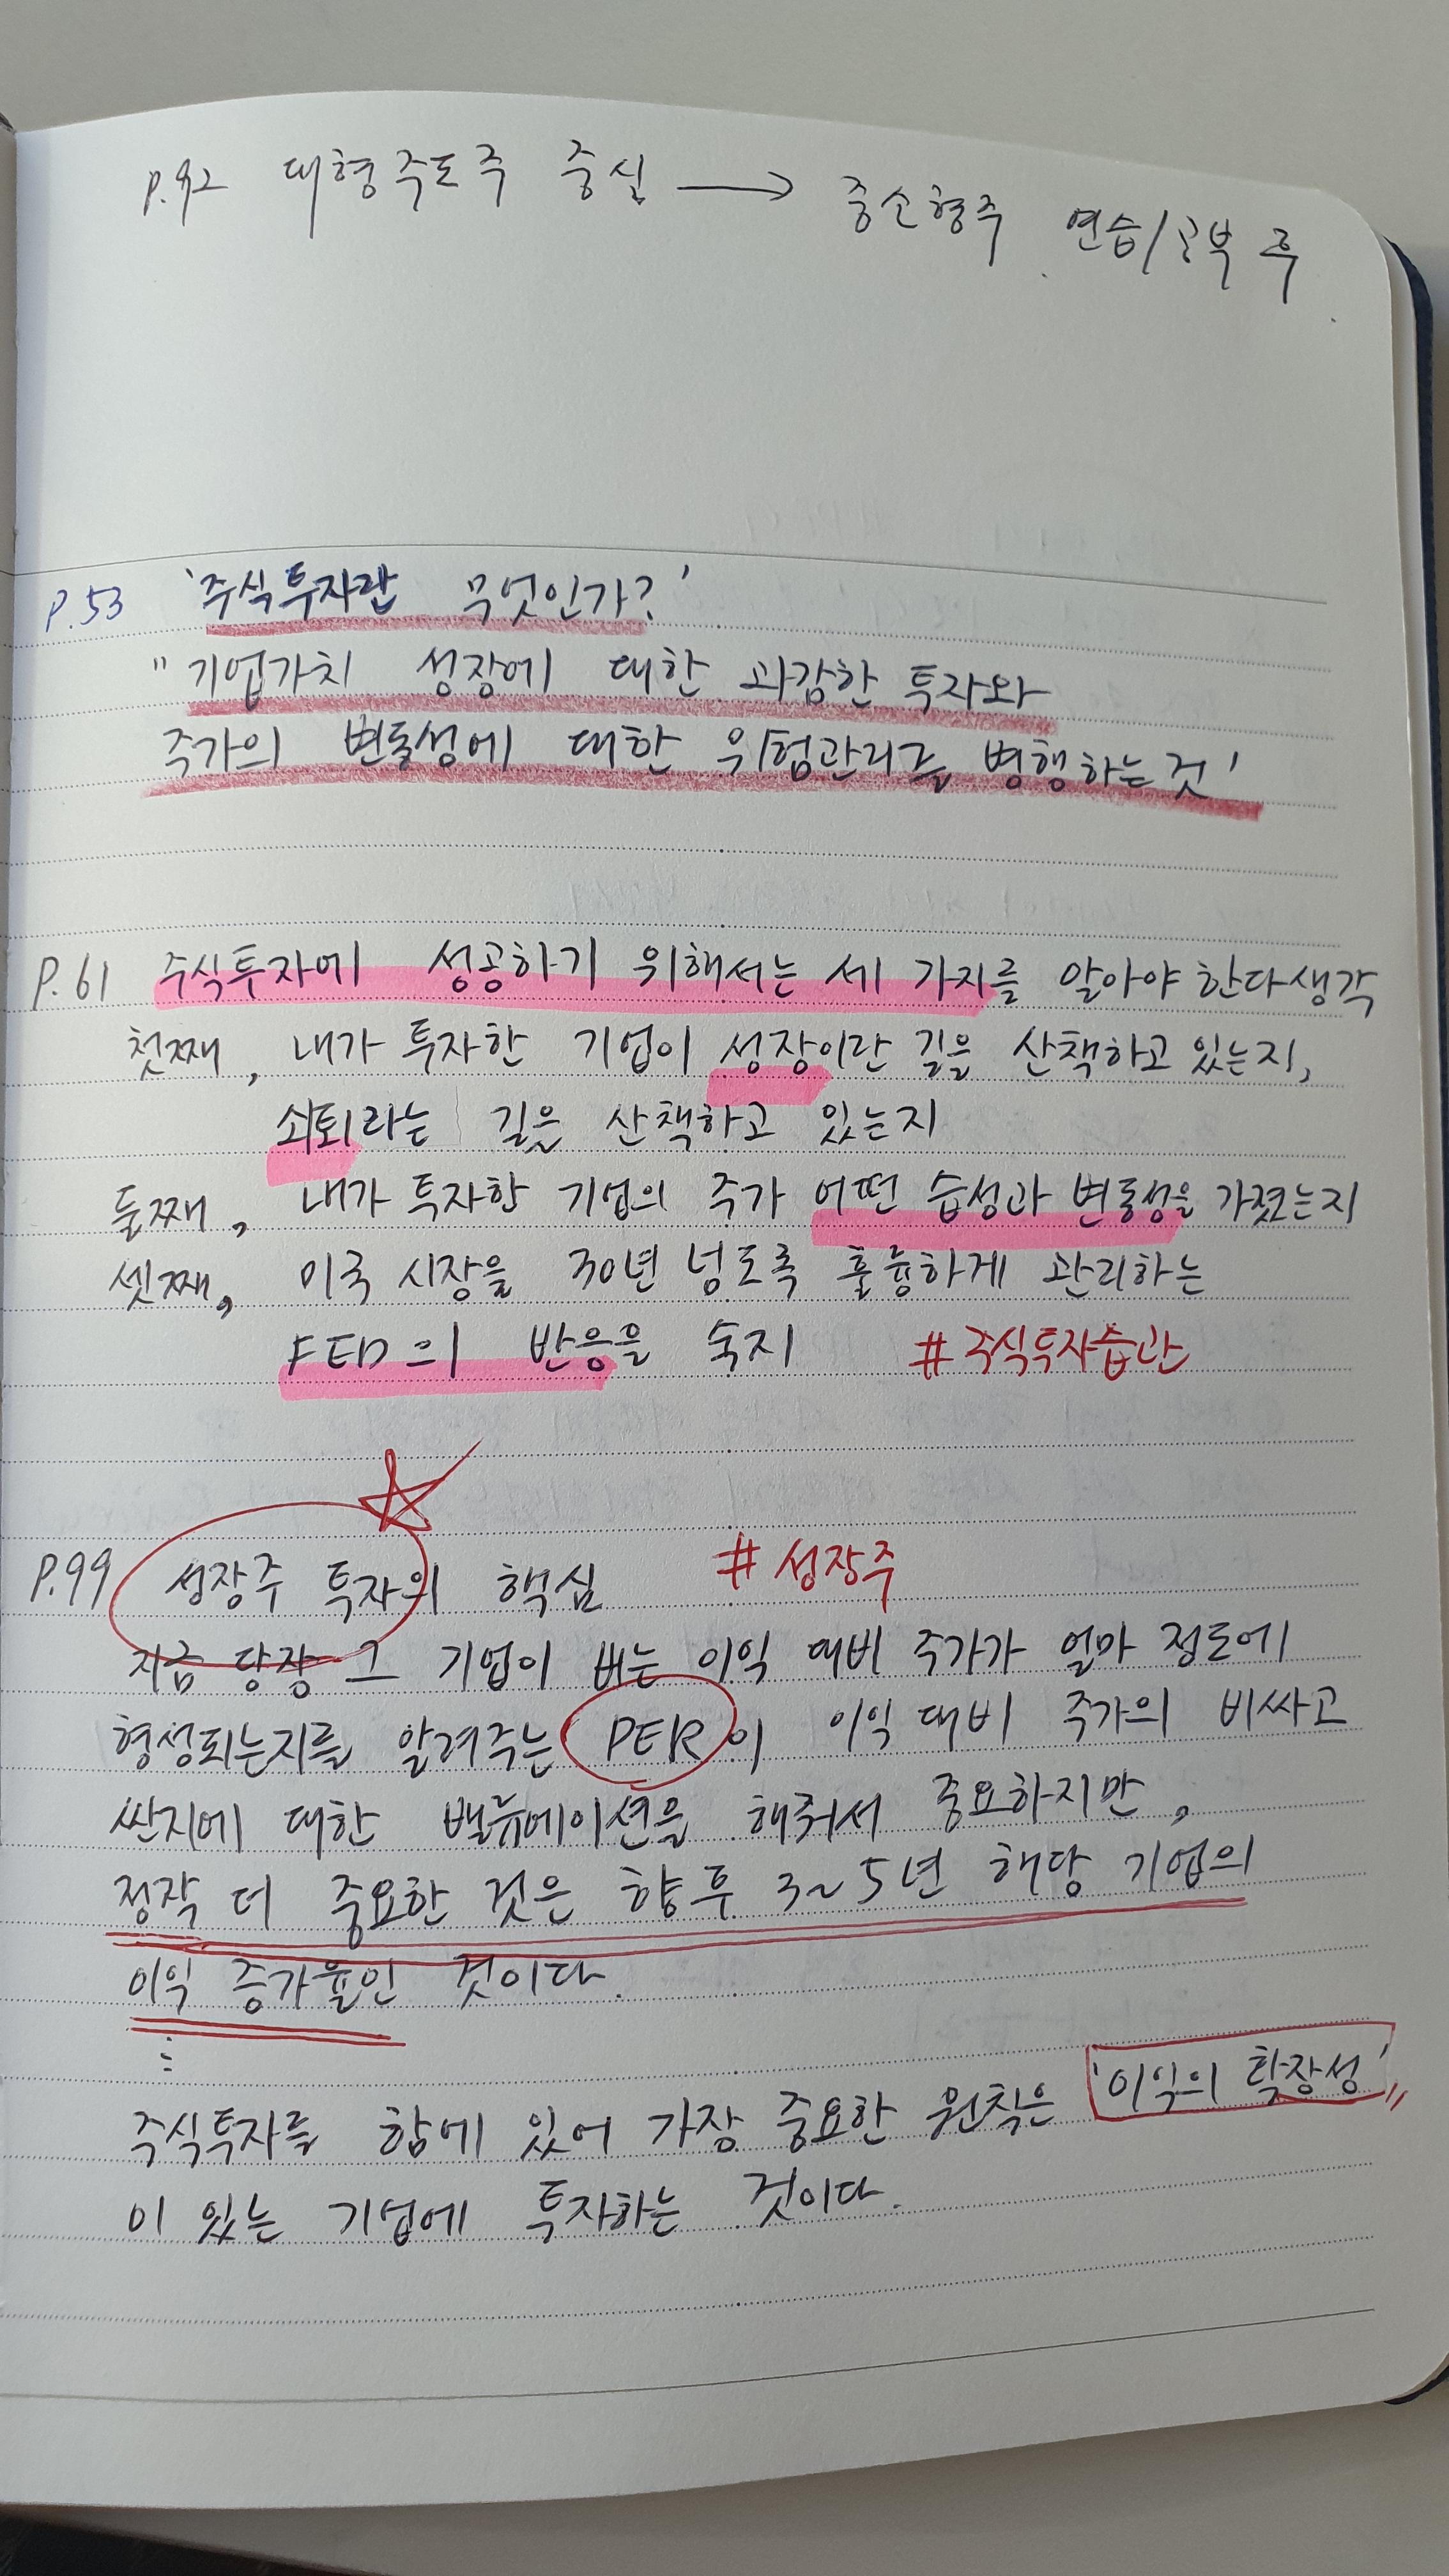 P.92 대형주도주 중심 → 중소형주 연습/공부 후
P.53 '주식투자란 무엇인가?'
"기업가치 성장에 대한 과감한 투자와
주가의 변동성에 대한 위험관리를 병행하는것'
P.61 주식투자에 성공하기 위해서는 세 가지를 알아야 한다 생각
첫째, 내가 투자한 기업이 성장이란 길을 산책하고 있는지,
쇠퇴라는 길을 산책하고 있는지
둘째, 내가 투자한 기업의 주가 어떤 습성과 변동성을 가졌는지
셋째, 미국 시장을 30년 넘도록 훌륭하게 관리하는
FED의 반응을 숙지 #주식투자습관
P.99 성장주 투자의 핵심 #성장주
지금 당장 그 기업이 버는 이익 대비 주가가 얼마 정도에
형성되는지를 알려주는 PER이 이익 대비 주가의 비싸고
싼지에 대한 밸류에이션을 해줘서 중요하지만,
정작 더 중요한 것은 향후 3~5년 해당 기업의
이익 증가율인 것이다.
⋮
주식투자를 함에 있어 가장 중요한 원칙은 '이익의 확장성'
이 있는 기업에 투자하는 것이다.